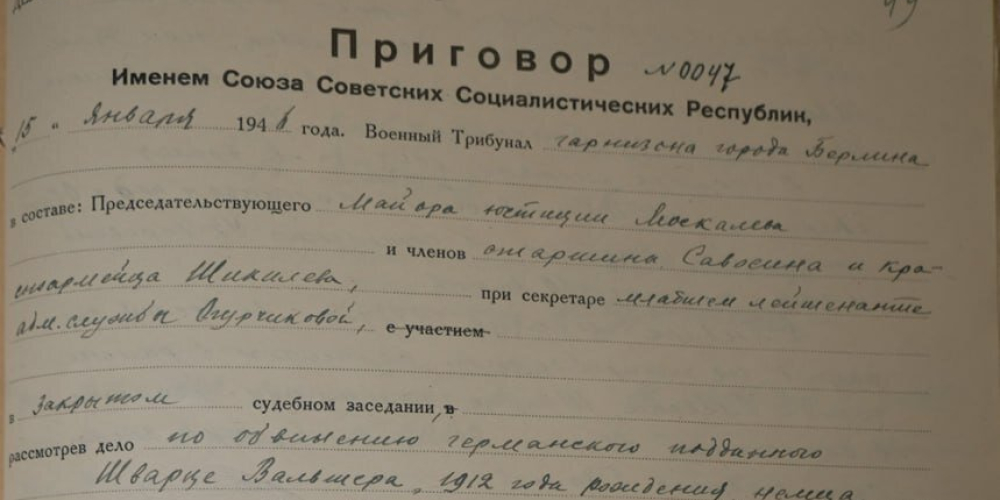 99
Приговор №0047
Именем Союза Советских Социалистических Республик,
"15" Января 1946 года. Военный Трибунал гарнизона города Берлина
в составе: Председательствующего Майора юстиции Москалева
и членов старшина Савосина и кра-
сноармейца Шикилева, при секретаре младшем лейтенанте
адм. службы Огурчиковой, с участием
в закрытом судебном заседании, в
рассмотрев дело по обвинению германского подданного
Шварце Вальтера, 1912 года рождения немца